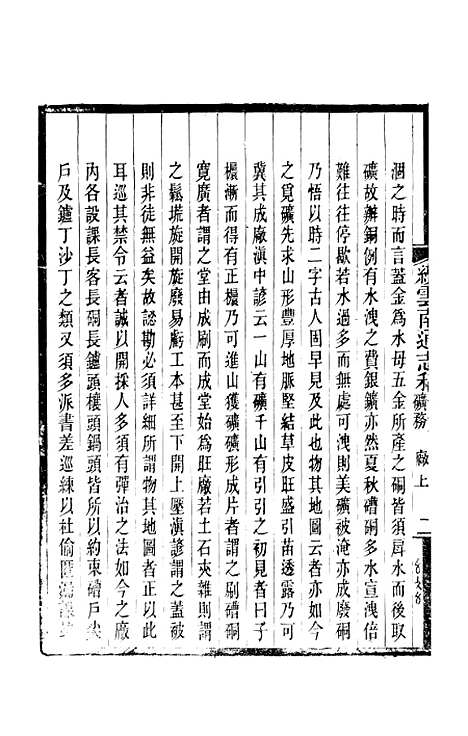 續雲南通志稿 礦務 廠上 二
涸之時而言蓋金爲水母五金所產之硐皆須戽水而後取
礦故辦銅例有水洩之費銀鑛亦然夏秋礌硐多水宣洩倍
難往往停歇若水過多而無處可洩則美礦被淹亦成廢硐
乃悟以時二字古人固早見及此也物其地圖云者亦如今
之覓礦先求山形豐厚地脈堅結草皮旺盛引苗透露乃可
冀其成廠滇中諺云一山有礦千山有引引之初見者曰子
櫃漸而得有正櫃乃可進山獲礦礦形成片者謂之刷礌硐
寬廣者謂之堂由成刷而成堂始爲旺廠若土石夾雜則謂
之鬆㙩旋開旋廢易虧工本甚至下開上壓滇諺謂之蓋被
則非徒無益矣故認勘必須詳細所謂物其地圖者正以此
耳巡其禁令云者誠以開採人多則須有彈治之法如今之廠
內各設課長客長硐長鑪頭欀頭鍋頭皆所以約束礌戶尖
戶及鑪丁沙丁之類又須多派書差巡練以杜偷匿